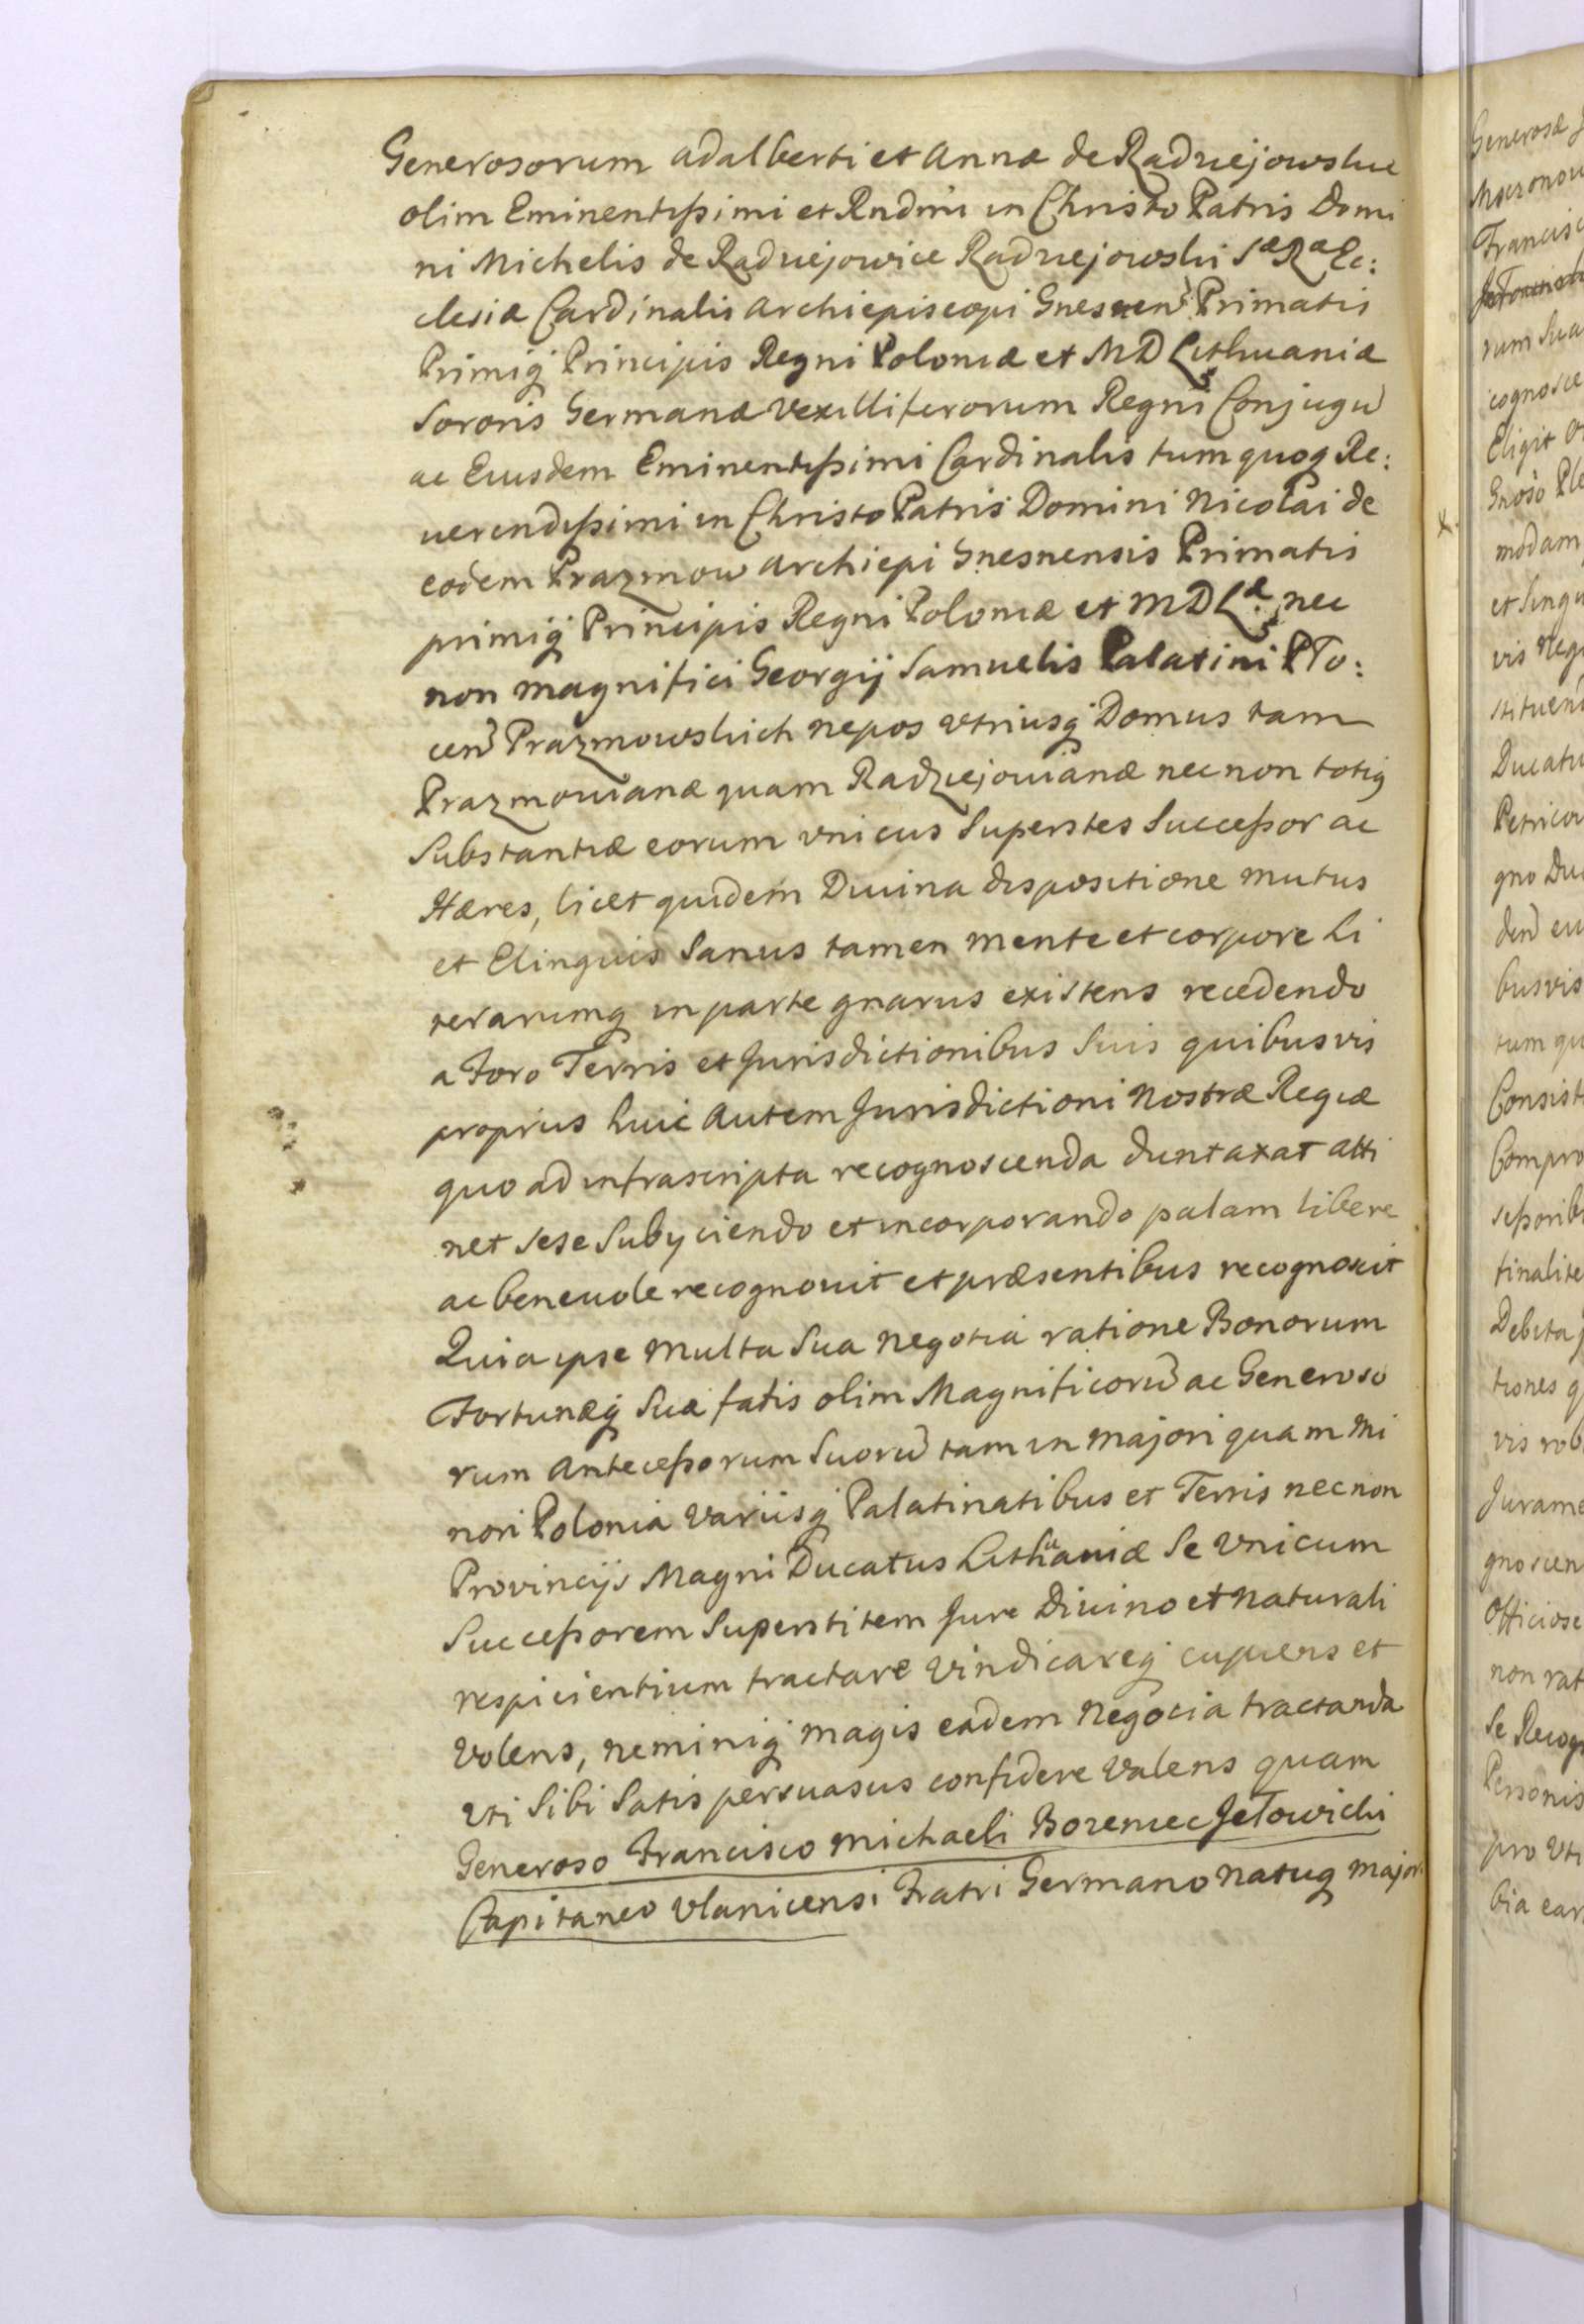 Generosorum Adalberti et Annæ de Radziejowskie
olim Eminentissimi et Rndmi in Christo Patris Domi
ni Michelis de Radziejowice Radziejowski Sæ Ræ Ec:
clesiæ Cardinalis Archiepiscopi Gnesnen Primatis
Primiq Principis Regni Poloniæ et MD Lithuaniæ
Sororis Germanæ Vexilliferorum Regni Conjugu
ac Eiusdem Eminentissimi Cardinalis tum quoq Re:
uerendissimi in Christo Patris Domini Nicolai de
eodem Prazmow Archiepi Gnesnensis Primatis
primiq Principis Regni Poloniæ et MDLæ nec
non Magnifici Georgij Samuelis Palatini PTo:
cen Prazmowskich nepos vtriusq Domus tam
Prazmowianæ quam Radziejouianæ nec non totiq
Substantiæ eorum vnicus Superstes Successor ac
Hæres, licet quidem Diuina dispositione mutus
et Elinguis Sanus tamen mente et corpore Li
terarumq in parte gnarus existens recedendo
a Foro Terris et Jurisdictionibus Suis quibusvis
proprijs huic autem Jurisdictioni Nostræ Regiæ
quo ad infrascripta recognoscenda duntaxat atti
net sese Subyciendo et incorporando palam libere
ac beneuole recognouit et præsentibus recognoscit
Quia ipse Multa Sua negotia ratione Bonorum
Fortunæq Suæ fatis olim Magnificoru ac Generoso
rum Antecessorum Suoru tam in majori quam Mi
nori Polonia Variisq Palatinatibus et Terris nec non
Provincijs Magni Ducatus Lithuaniæ Se Vnicum
Successorem Superstitem Jure Diuino et Naturali
respicientium tractare Vindicareq cupiens et
Volens, neminiq magis eadem Negocia tractanda
vti Sibi Satis persuasus confidere Valens quam
Generoso Francisco Michaeli Bozeniec Jełowicki
Capitaneo Vlanicensi Fratri Germano Natuq major